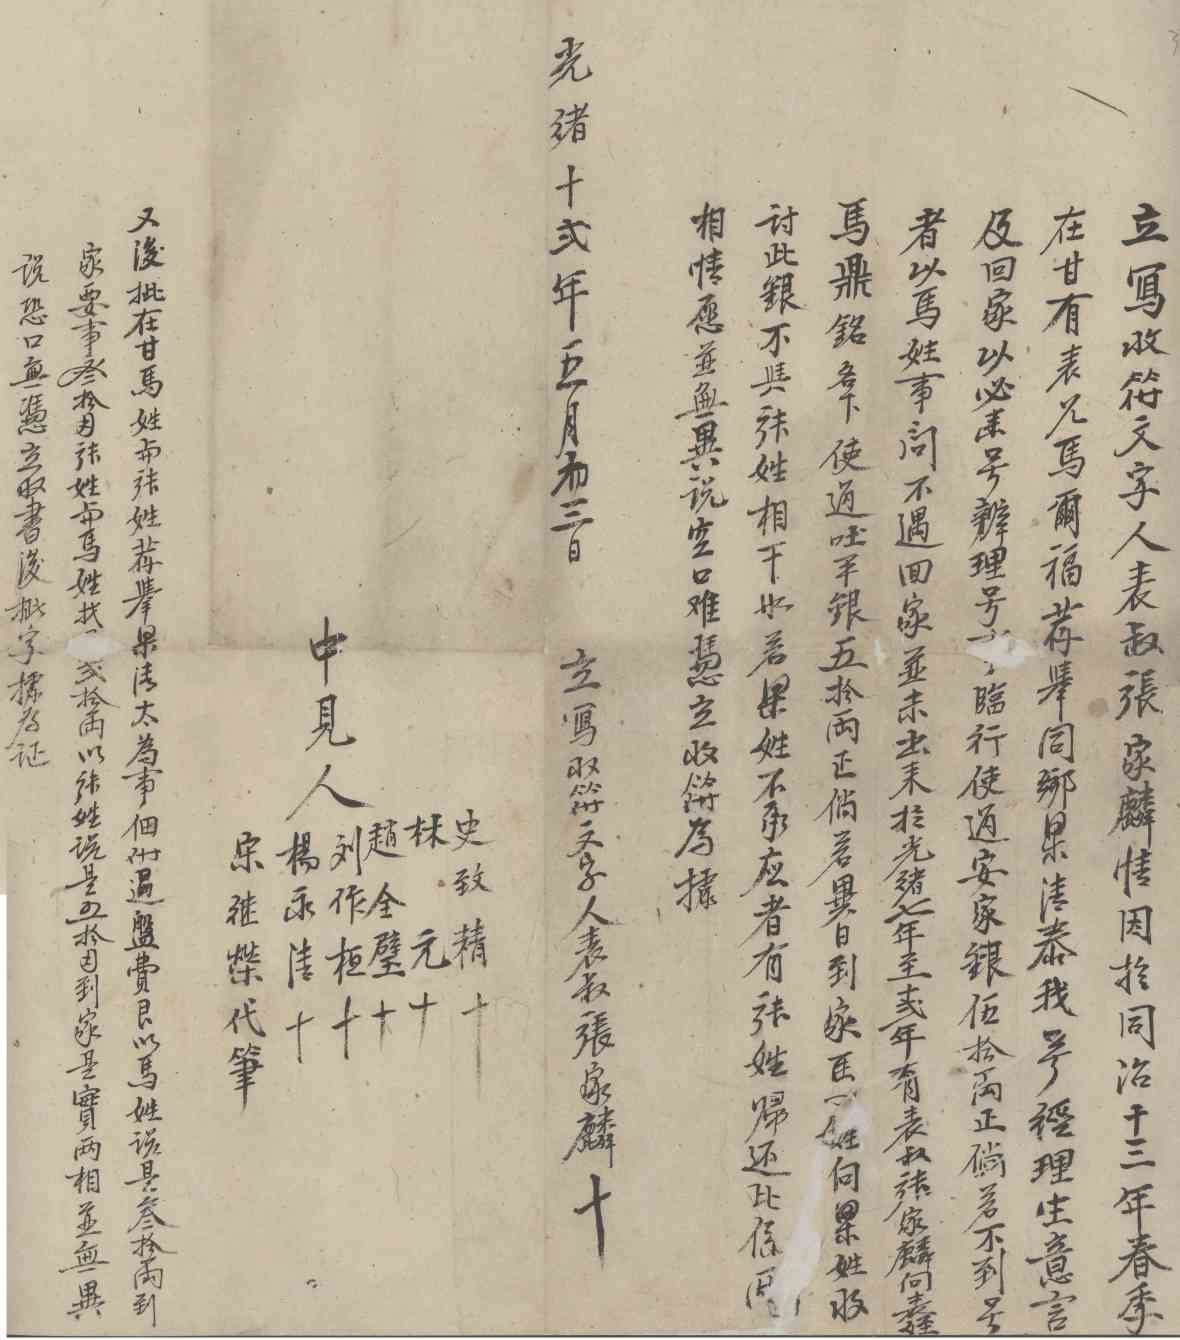 立寫收符文字人表叔張家麟情因於同治十三年春季
在甘有表兄馬爾福荐舉同鄉杲清泰我号經理生意言
及回家以必来号辦理号臨行使過安家銀伍拾両正倘若不到号
者以馬姓事問不遇回家並未出来於光绪七年至弍年有表叔張家麟向表侄
馬鼎銘名下使過吐平銀五拾両正倘若異日到家馬姓向杲姓收
討此銀不與張姓相干如若杲姓不承应者有張姓歸还此係両
相情愿並無異说空口难憑立收符為據
光绪十弍年五月初三日 立寫收符文字人表叔張家麟十
中見人
史致精十
林元十
趙全璧十
刘作桓十
楊永清十
宋继榮代筆
又後批在甘馬姓与張姓荐舉杲清太為事佃附過盤費艮以馬姓说是叁拾両到
家要事叁拾因張姓与馬姓找弍拾両以張姓说是五拾因到家是實両相並無異
说恐口無憑立收書後批字據為証